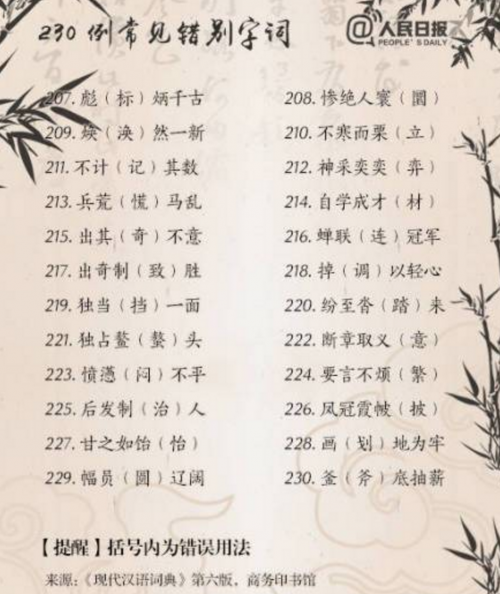 230 例常见错别字词
@人民日报
PEOPLE'S DAILY
207. 彪（标）炳千古 208. 惨绝人寰（圜）
209. 焕（涣）然一新 210. 不寒而栗（立）
211. 不计（记）其数 212. 神采奕奕（弈）
213. 兵荒（慌）马乱 214. 自学成才（材）
215. 出其（奇）不意 216. 蝉联（连）冠军
217. 出奇制（致）胜 218. 掉（调）以轻心
219. 独当（挡）一面 220. 纷至沓（踏）来
221. 独占鳌（螯）头 222. 断章取义（意）
223. 愤懑（闷）不平 224. 要言不烦（繁）
225. 后发制（治）人 226. 凤冠霞帔（披）
227. 甘之如饴（怡） 228. 画（划）地为牢
229. 幅员（圆）辽阔 230. 釜（斧）底抽薪
【提醒】括号内为错误用法
来源：《现代汉语词典》第六版，商务印书馆